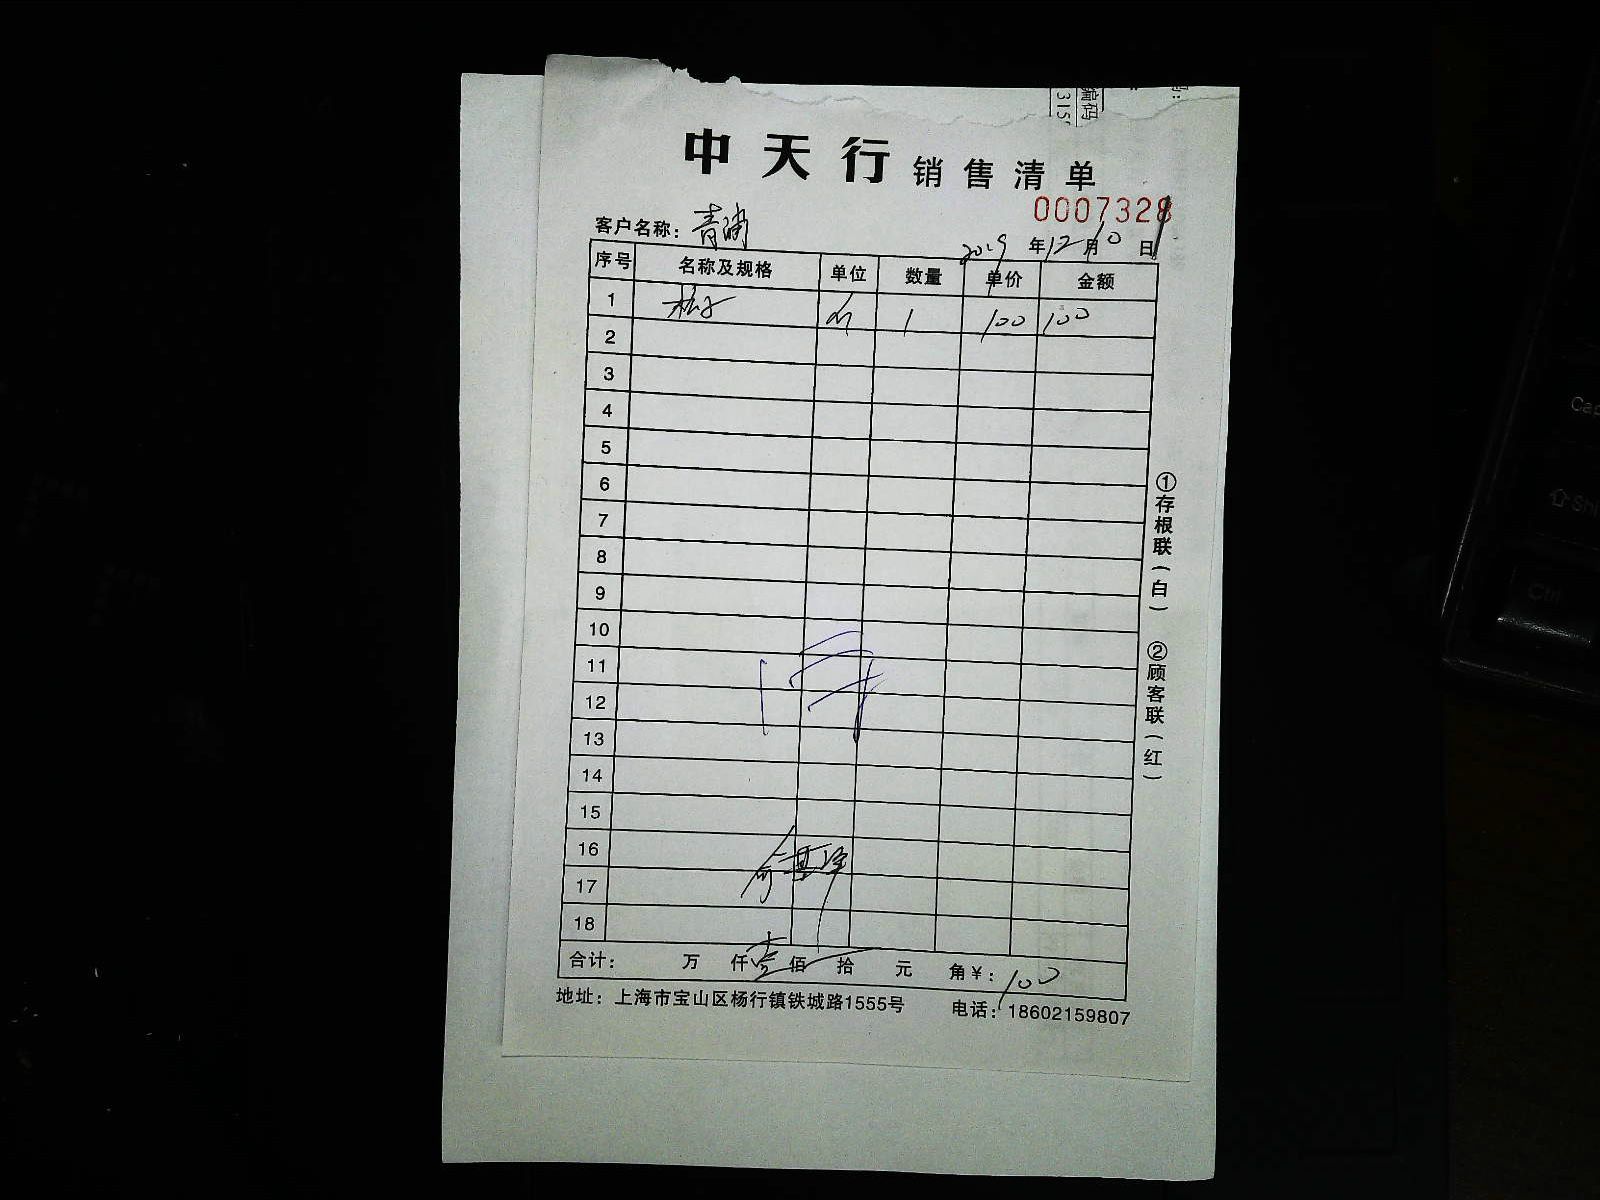 编码
315
中天行 销售清单
0007328
客户名称：青浦
2019年12月10日
序号 名称及规格 单位 数量 单价 金额
1 1 100 100
2
3
4
5
6
7
8
9
10
11
12
13
14
15
16
17
18
合计： 万 仟 壹佰 拾 元 角 ￥：100
地址：上海市宝山区杨行镇铁城路1555号 电话：18602159807
①存根联（白） ②顾客联（红）